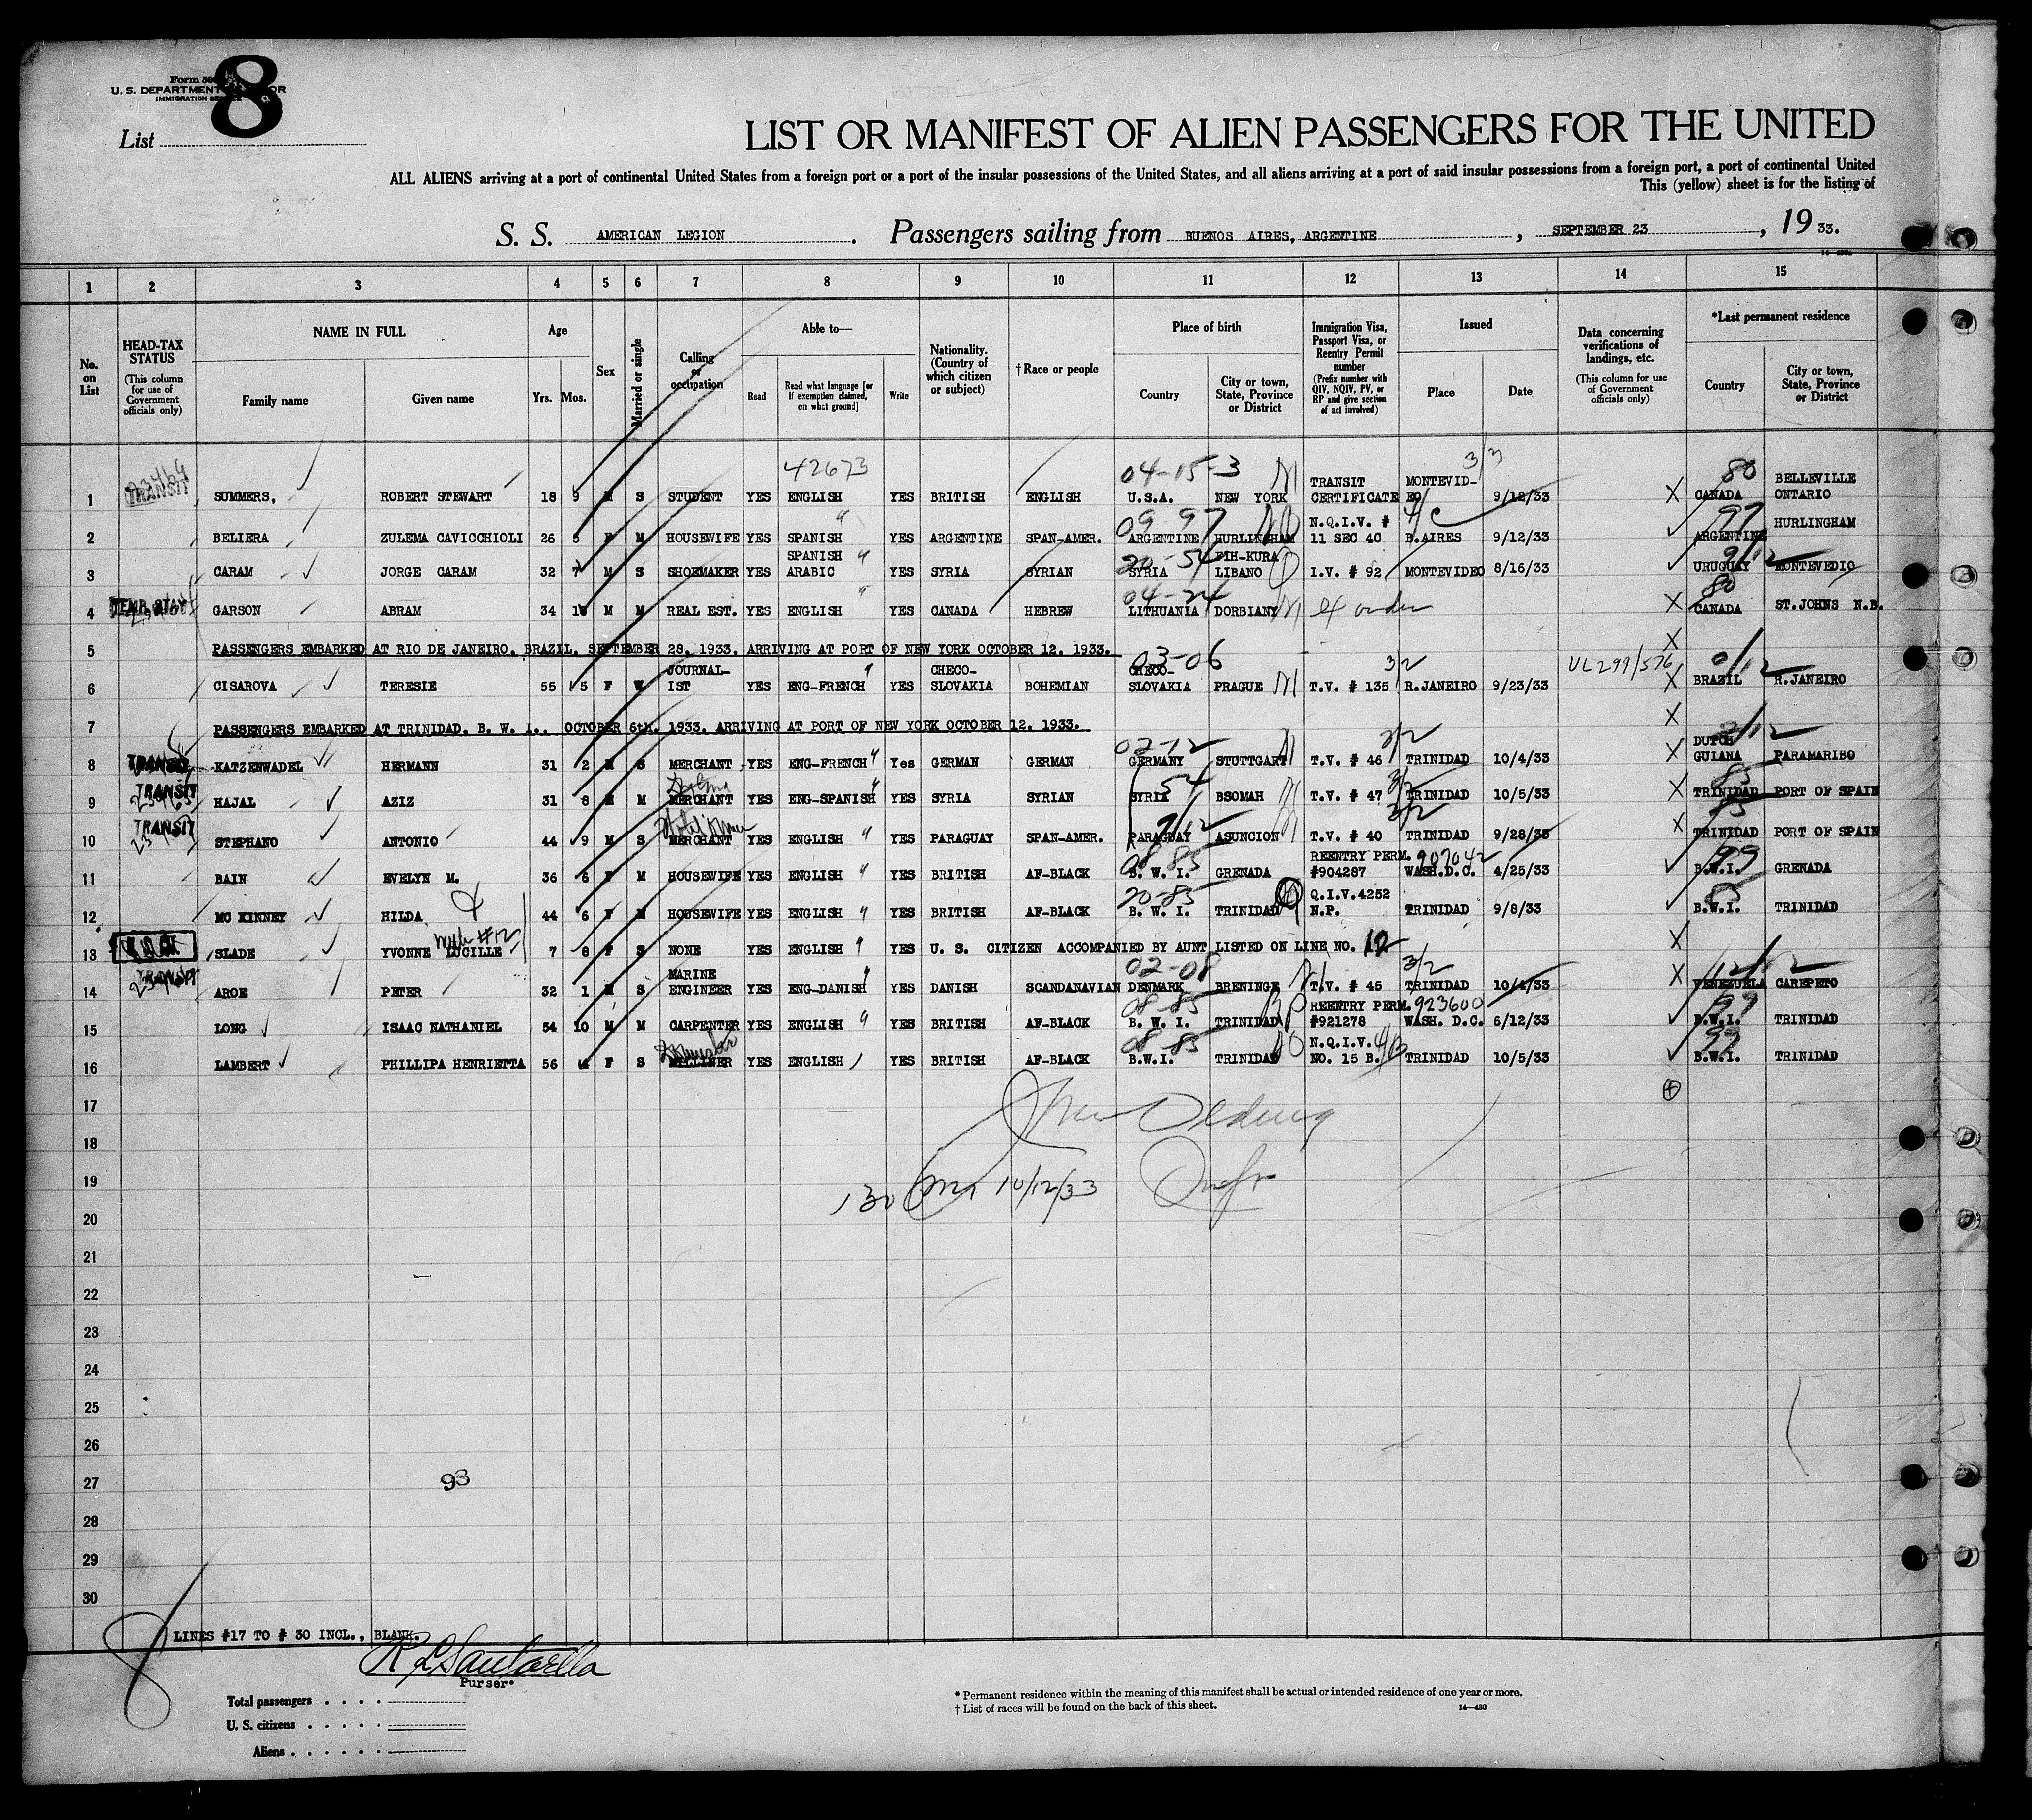 Form 500
U. S. DEPARTMENT OF LABOR
IMMIGRATION SERVICE
8
List
LIST OR MANIFEST OF ALIEN PASSENGERS FOR THE UNITED
ALL ALIENS arriving at a port of continental United States from a foreign port or a port of the insular possessions of the United States, and all aliens arriving at a port of said insular possessions from a foreign port, a port of continental United
This (yellow) sheet is for the listing of
S. S. AMERICAN LEGION. Passengers sailing from BUENOS AIRES, ARGENTINE, SEPTEMBER 23, 1933.
1 2 3 4 5 6 7 8 9 10 11 12 13 14 15
No. on List
HEAD-TAX STATUS (This column for use of Government officials only)
NAME IN FULL Family name Given name
Age Yrs. Mos.
Sex
Married or single
Calling or occupation
Able to— Read Read what language [or if exemption claimed, on what ground] Write
Nationality. (Country of which citizen or subject)
†Race or people
Place of birth Country City or town, State, Province or District
Immigration Visa, Passport Visa, or Reentry Permit number (Prefix number with QIV, NQIV, PV, or RP and give section of act involved)
Issued Place Date
Data concerning verifications of landings, etc. (This column for use of Government officials only)
*Last permanent residence Country City or town, State, Province or District
42673 04-15-3 3/2 80
1 TRANSIT SUMMERS, ROBERT STEWART 18 9 M S STUDENT YES ENGLISH YES BRITISH ENGLISH U.S.A. NEW YORK TRANSIT CERTIFICATE MONTEVIDEO 9/12/33 X CANADA BELLEVILLE ONTARIO
09-97 97
2 BELIERA ZULEMA CAVICCHIOLI 26 5 F M HOUSEWIFE YES SPANISH " YES ARGENTINE SPAN-AMER. ARGENTINE HURLINGHAM N.Q.I.V. # 11 SEC 4C B.AIRES 9/12/33 ARGENTINE HURLINGHAM
20-54 9/12
3 CARAM JORGE CARAM 32 7 M S SHOEMAKER YES SPANISH " ARABIC YES SYRIA SYRIAN SYRIA LIBANO I.V. # 92 MONTEVIDEO 8/16/33 URUGUAY MONTEVEDIO
04-24 80
4 TEMP. STAY GARSON ABRAM 34 10 M M REAL EST. YES ENGLISH " YES CANADA HEBREW LITHUANIA DORBIANY ex order X CANADA ST.JOHNS N.B.
5 PASSENGERS EMBARKED AT RIO DE JANEIRO. BRAZIL. SEPTEMBER 28. 1933. ARRIVING AT PORT OF NEW YORK OCTOBER 12. 1933. X
03-06 3/2 UL299/576
6 CISAROVA TERESIE 55 5 F W JOURNALIST YES ENG-FRENCH " YES CHECO-SLOVAKIA BOHEMIAN CHECO-SLOVAKIA PRAGUE T.V. # 135 R.JANEIRO 9/23/33 X BRAZIL R.JANEIRO
7 PASSENGERS EMBARKED AT TRINIDAD. B. W. I.. OCTOBER 6th. 1933. ARRIVING AT PORT OF NEW YORK OCTOBER 12. 1933. X
02-12 3/2 2/12
8 TRANSIT KATZENWADEL HERMANN 31 2 M S MERCHANT YES ENG-FRENCH " Yes GERMAN GERMAN GERMANY STUTTGART T.V. # 46 TRINIDAD 10/4/33 X DUTCH GUIANA PARAMARIBO
54 3/2 85
9 TRANSIT HAJAL AZIZ 31 8 M M MERCHANT YES ENG-SPANISH " YES SYRIA SYRIAN SYRIA BSOMAH T.V. # 47 TRINIDAD 10/5/33 X TRINIDAD PORT OF SPAIN
3/2
10 TRANSIT STEPHANO ANTONIO 44 9 M S MERCHANT YES ENGLISH " YES PARAGUAY SPAN-AMER. PARAGUAY ASUNCION T.V. # 40 TRINIDAD 9/28/33 X TRINIDAD PORT OF SPAIN
08-85 907042 99
11 BAIN EVELYN M. 36 6 F M HOUSEWIFE YES ENGLISH " YES BRITISH AF-BLACK B. W. I. GRENADA REENTRY PERM. #904287 WASH.D.C. 4/25/33 B.W.I. GRENADA
20-85 85
12 MC KINNEY HILDA 44 6 F M HOUSEWIFE YES ENGLISH " YES BRITISH AF-BLACK B. W. I. TRINIDAD Q.I.V.4252 N.P. TRINIDAD 9/8/33 B.W.I. TRINIDAD
with #12
13 SLADE YVONNE LUCILLE 7 8 F S NONE YES ENGLISH " YES U. S. CITIZEN ACCOMPANIED BY AUNT LISTED ON LINE NO. 12 X
02-08 3/2 12/12
14 TRANSIT AROE PETER 32 1 M S MARINE ENGINEER YES ENG-DANISH " YES DANISH SCANDANAVIAN DENMARK BRENINGE T.V. # 45 TRINIDAD 10/4/33 X VENEZUELA CAREPETO
08-85 923600 99
15 LONG ISAAC NATHANIEL 54 10 M M CARPENTER YES ENGLISH " YES BRITISH AF-BLACK B. W. I. TRINIDAD REENTRY PERM. #921278 WASH. D.C. 6/12/33 B.W.I. TRINIDAD
08-85 99
16 LAMBERT PHILLIPA HENRIETTA 56 4 F S MILLINER YES ENGLISH YES BRITISH AF-BLACK B.W.I. TRINIDAD N.Q.I.V. NO. 15 B. TRINIDAD 10/5/33 B.W.I. TRINIDAD
17
18
19 130 10/12/33
20
21
22
23
24
25
26
27 93
28
29
30
LINES #17 TO # 30 INCL., BLANK.
Purser.
Total passengers . . . .
U. S. citizens . . . . .
Aliens . . . . . .
* Permanent residence within the meaning of this manifest shall be actual or intended residence of one year or more.
† List of races will be found on the back of this sheet.
14—430